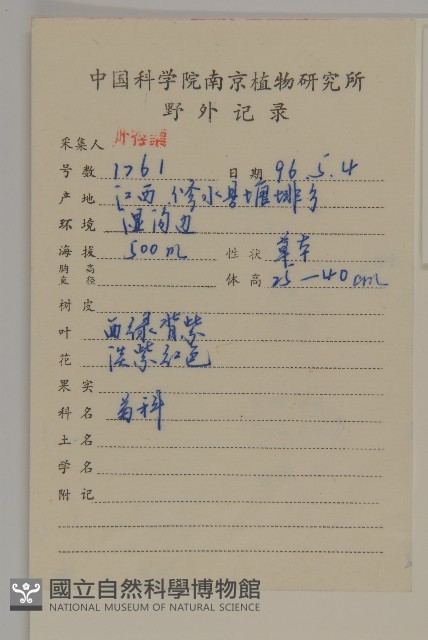 中国科学院南京植物研究所
野外记录
采集人
号数 1761 日期 96.5.4
产地 江西 修水县塘排乡
环境 湿沟边
海拔 500m 性状 草本
胸高直径 体高 25—40cm
树皮
叶 面绿背紫
花 淡紫红色
果实
科名 菊科
土名
学名
附记
國立自然科學博物館
NATIONAL MUSEUM OF NATURAL SCIENCE